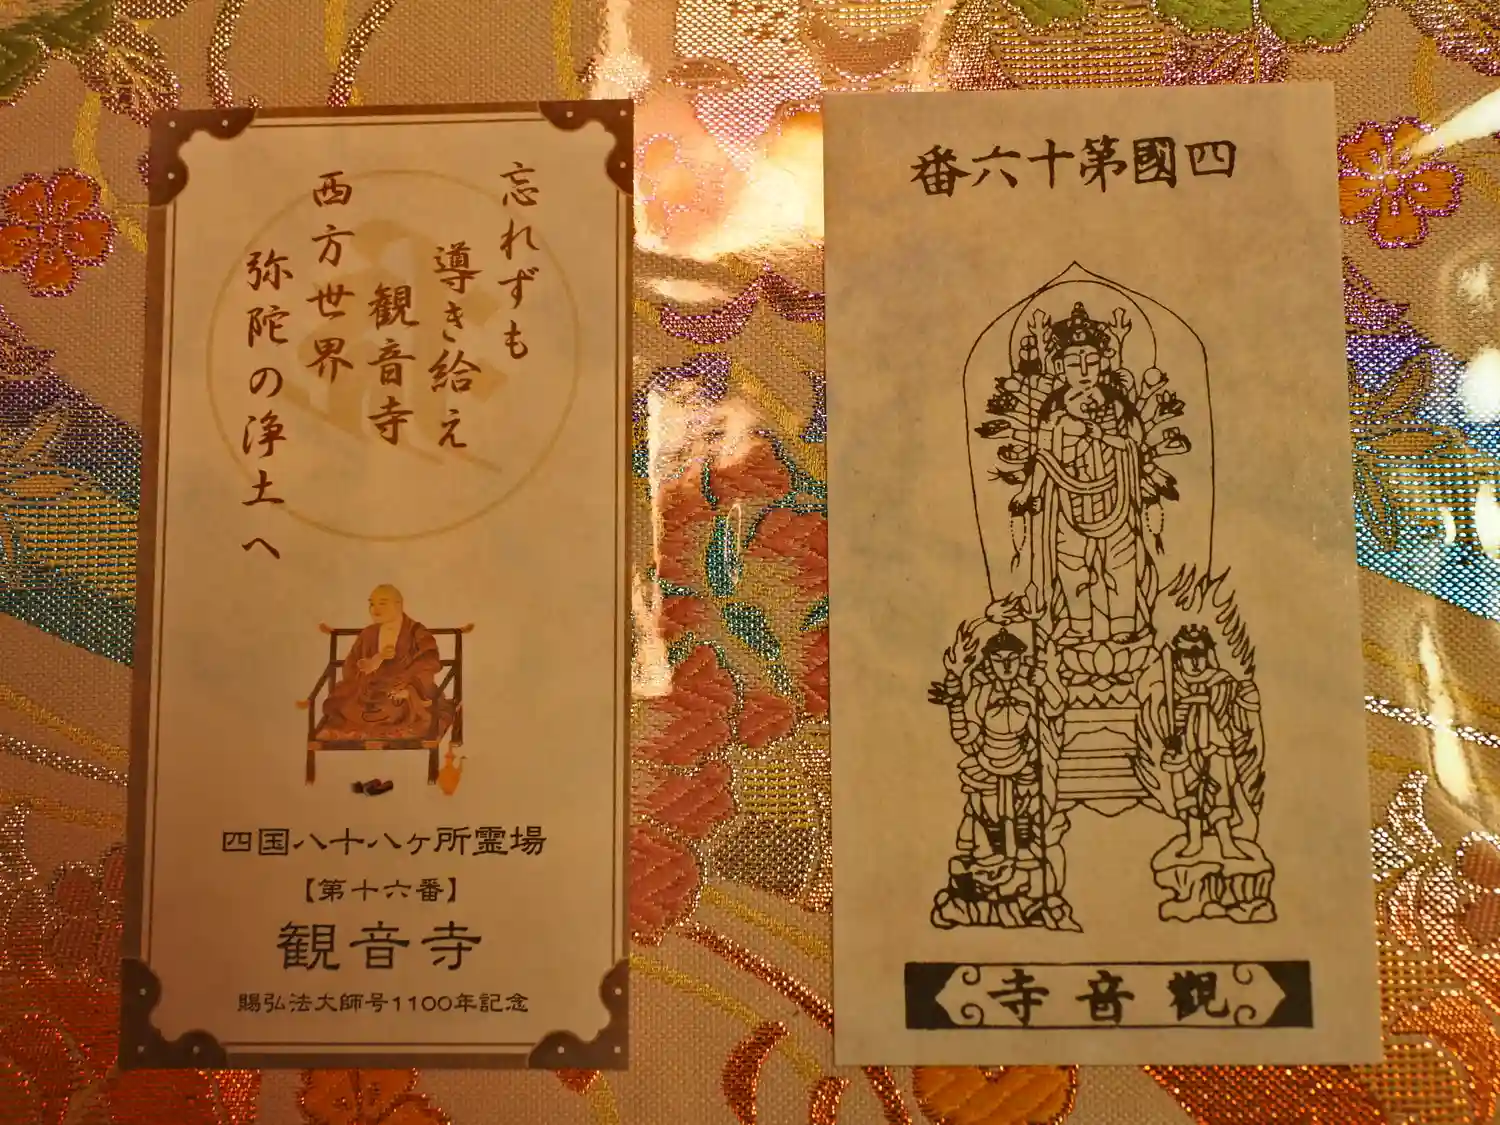 忘れずも
導き給え
観音寺
西方世界
弥陀の浄土へ
四国八十八ヶ所霊場
【第十六番】
観音寺
賜弘法大師号1100年記念
四國第十六番
觀音寺